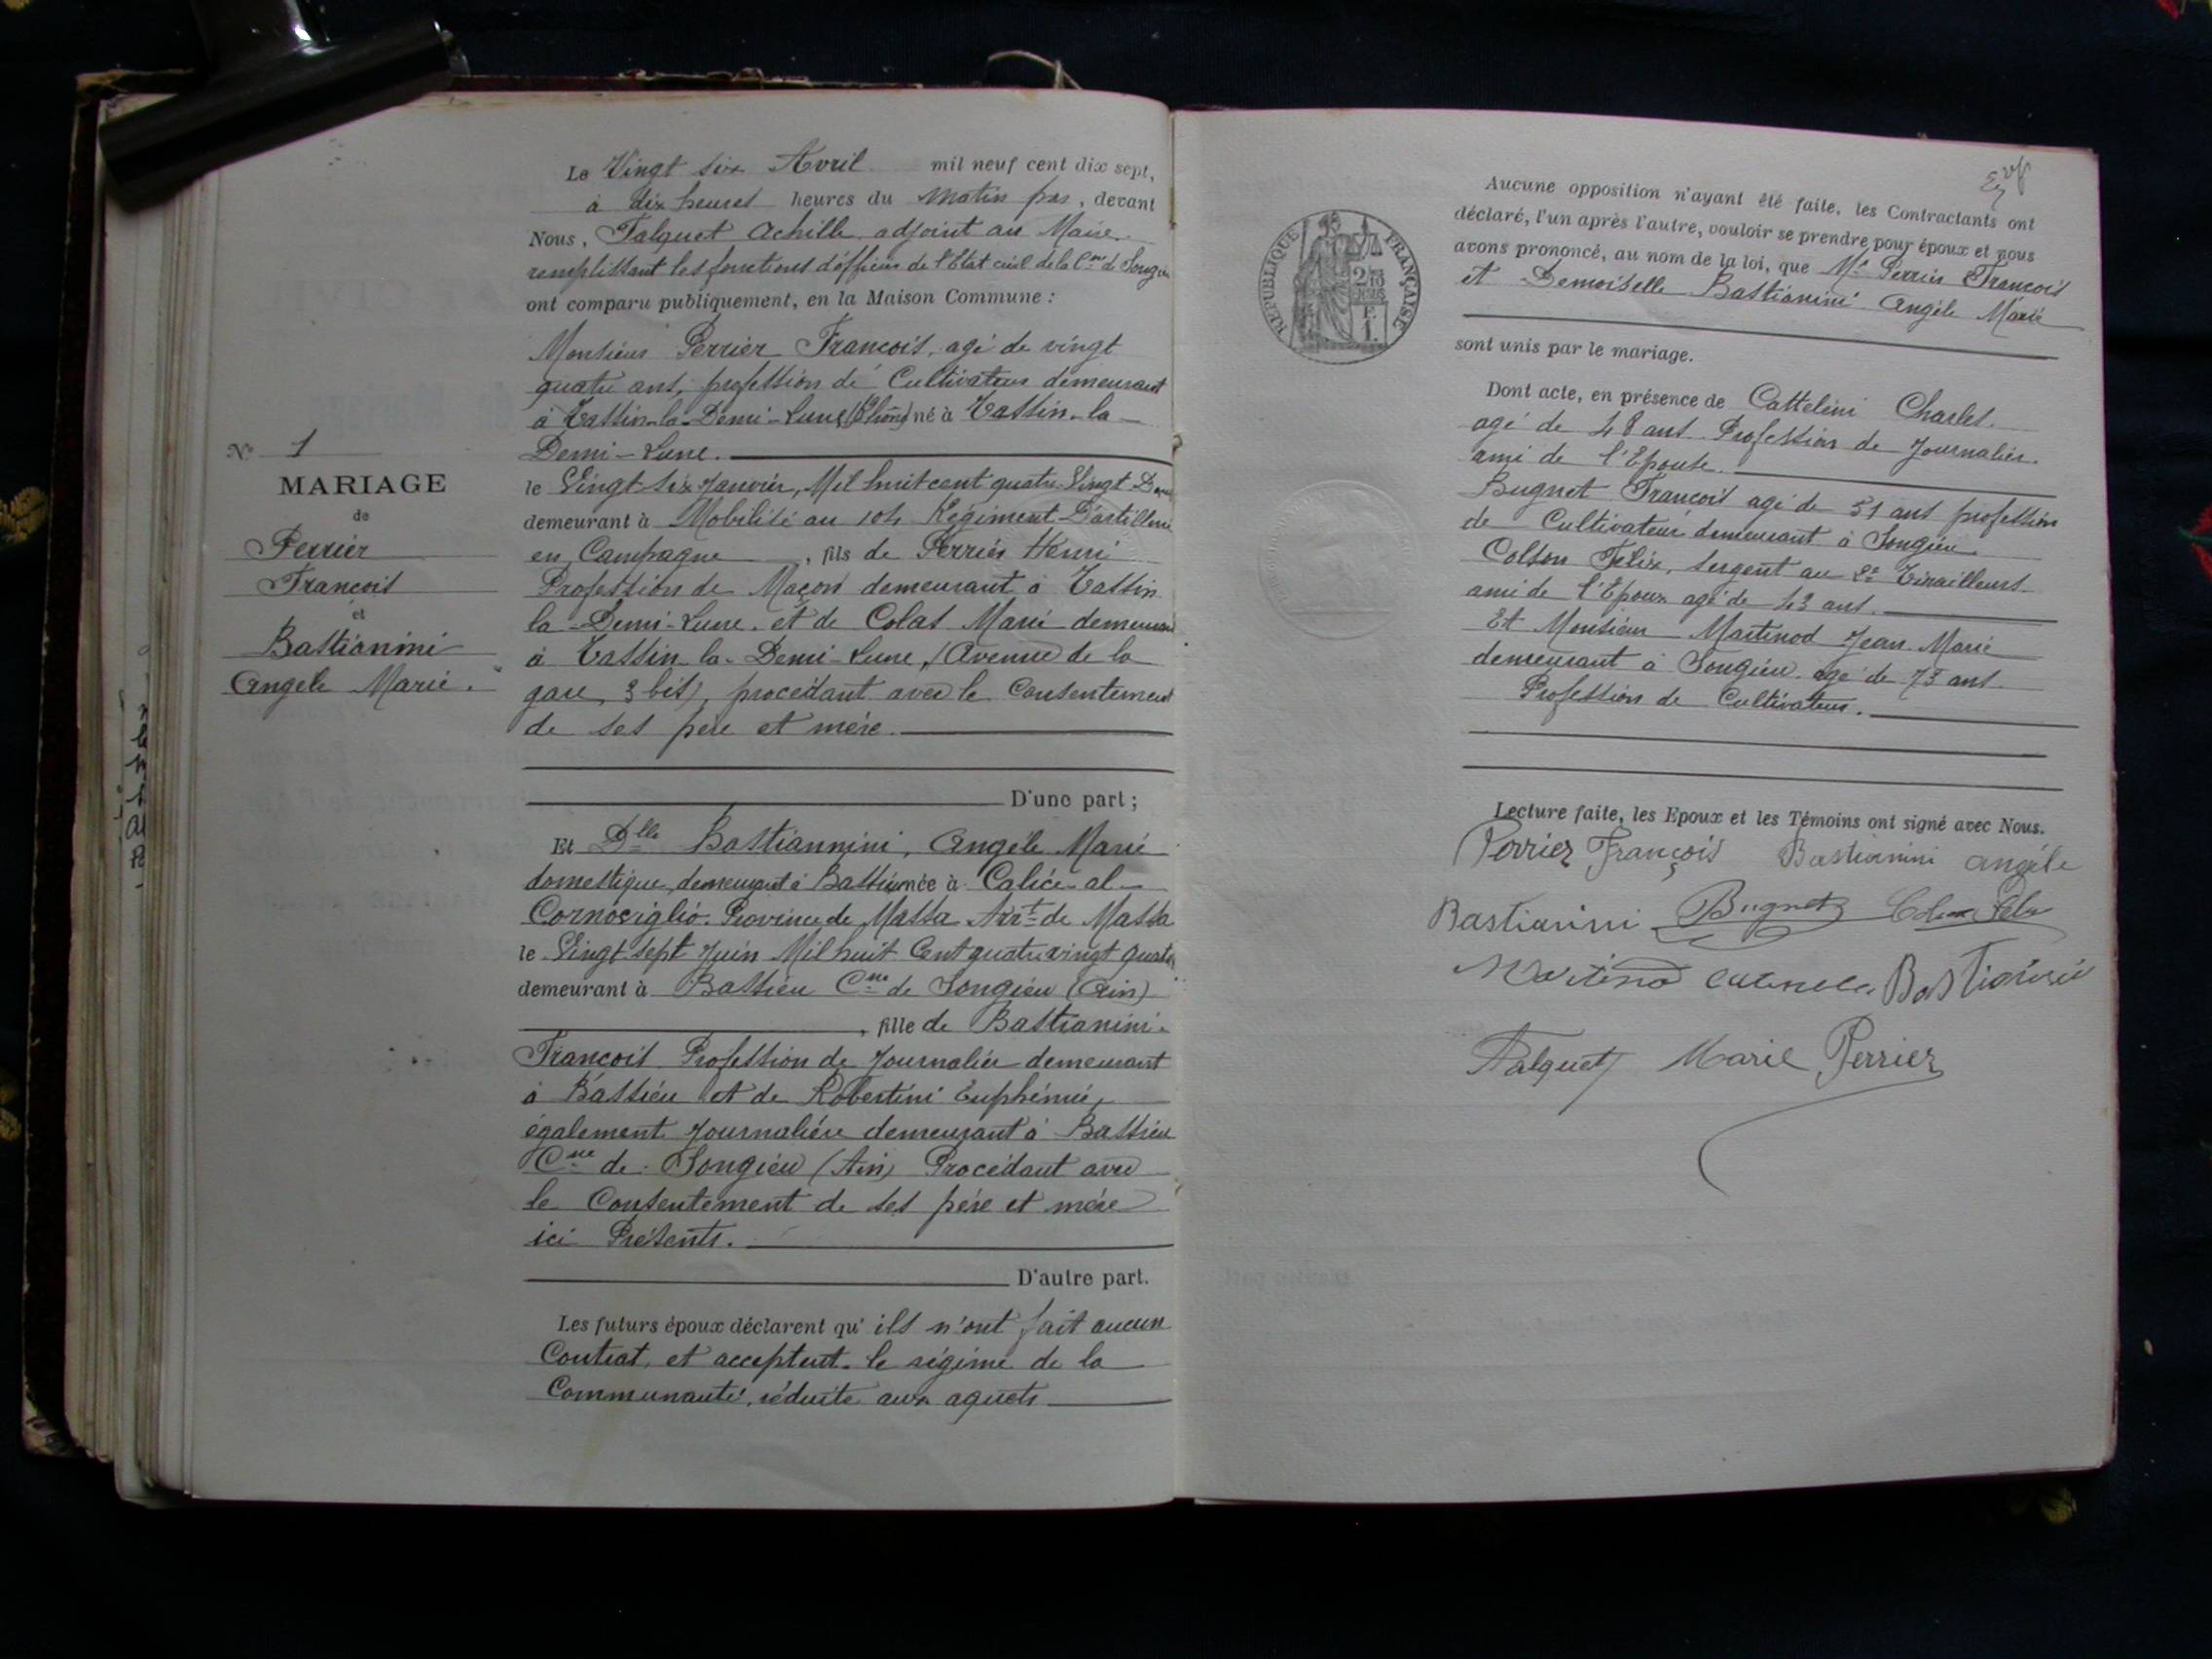 Le Vingt six Avril mil neuf cent dix sept,
à dix heures heures du matin pas, devant
Nous, Falquet Achille, adjoint au Maire
remplissant les fonctions d'officier de l'Etat civil de la Cne de Songieu
ont comparu publiquement, en la Maison Commune :
Monsieur Perrier François, agé de vingt
quatre ans, profession de Cultivateur demeurant
à Tassin-la-Demi-Lune (Rhône) né à Tassin-la-
Demi-Lune.
le Vingt six Janvier, Mil huit cent quatre Vingt
demeurant à Mobilisé au 104 Régiment D'artillerie
en Campagne, fils de Perrier Henri
Profession de Maçon demeurant à Tassin
la-Demi-Lune. et de Colas Marie demeurant
à Tassin-la-Demi-Lune, (Avenue de la
gare, 3 bis), procédant avec le Consentement
de ses père et mère.
D'une part ;
N° 1
MARIAGE
de
Perrier
François
et
Bastianini
Angele Marie.
Et Dlle Bastiannini, Angèle Marie
domestique, demeurant à Bassieu née à Calice-al-
Cornoviglio. Province de Massa Arrt de Massa
le Vingt sept Juin Mil huit Cent quatre vingt quatre
demeurant à Bassieu Cne de Songieu (Ain)
, fille de Bastianini.
François Profession de Journalier demeurant
à Bassieu et de Robertini Euphémie,
également Journalière demeurant à Bassieu
Cne de Songieu (Ain) Procédant avec
le Consentement de ses père et mère
ici Présents.
D'autre part.
Les futurs époux déclarent qu'ils n'ont fait aucun
Contrat, et acceptent le régime de la
Communauté, réduite aux aquets
RÉPUBLIQUE FRANÇAISE
Aucune opposition n'ayant été faite, les Contractants ont
déclaré, l'un après l'autre, vouloir se prendre pour époux et nous
avons prononcé, au nom de la loi, que Mr Perrier François
et Demoiselle Bastianini Angèle Marie
sont unis par le mariage.
Dont acte, en présence de Cattelini Charles.
agé de 48 ans Profession de Journalier.
ami de l'Epouse.
Bugnet François agé de 51 ans profession
de Cultivateur demeurant à Songieu.
Colson Félix, sergent au 2e Tirailleurs
ami de l'Epoux agé de 43 ans.
Et Monsieur Martinod Jean Marie
demeurant à Songieu agé de 73 ans
Profession de Cultivateur.
Lecture faite, les Epoux et les Témoins ont signé avec Nous.
Perrier François Bastianini angèle
Bastianini Bugnet
Martinod Bastianini
Falquet Marie Perrier